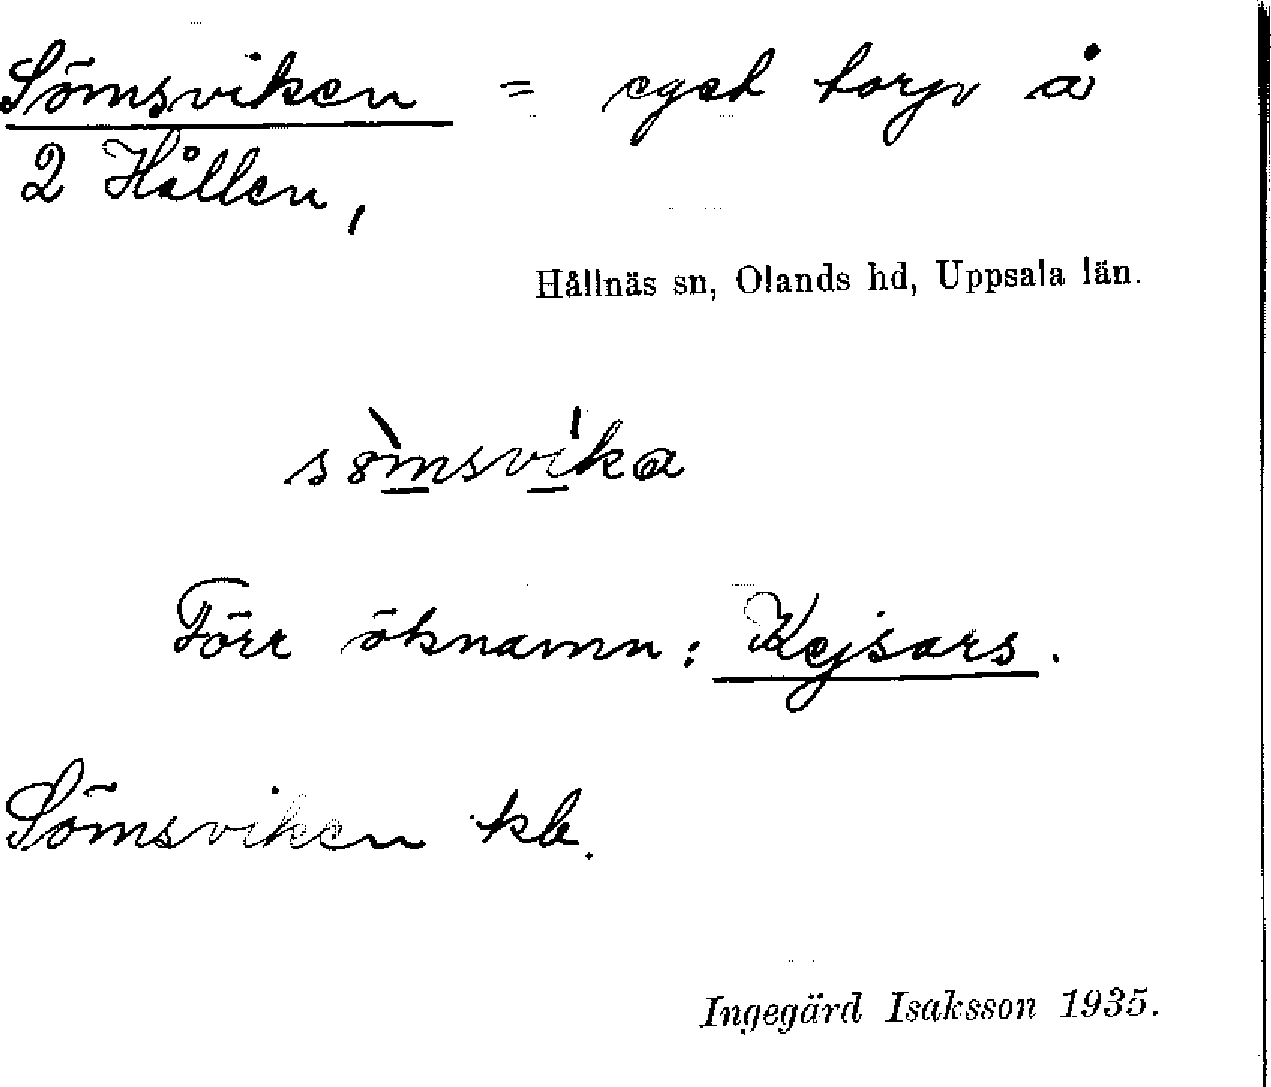 Sömsviken = eget torp å
2 Hållen,
Hållnäs sn, Olands hd, Uppsala län.
sömsvika
Förr öknamn: Kejsars.
Sömsviken kb.
Ingegärd Isaksson 1935.